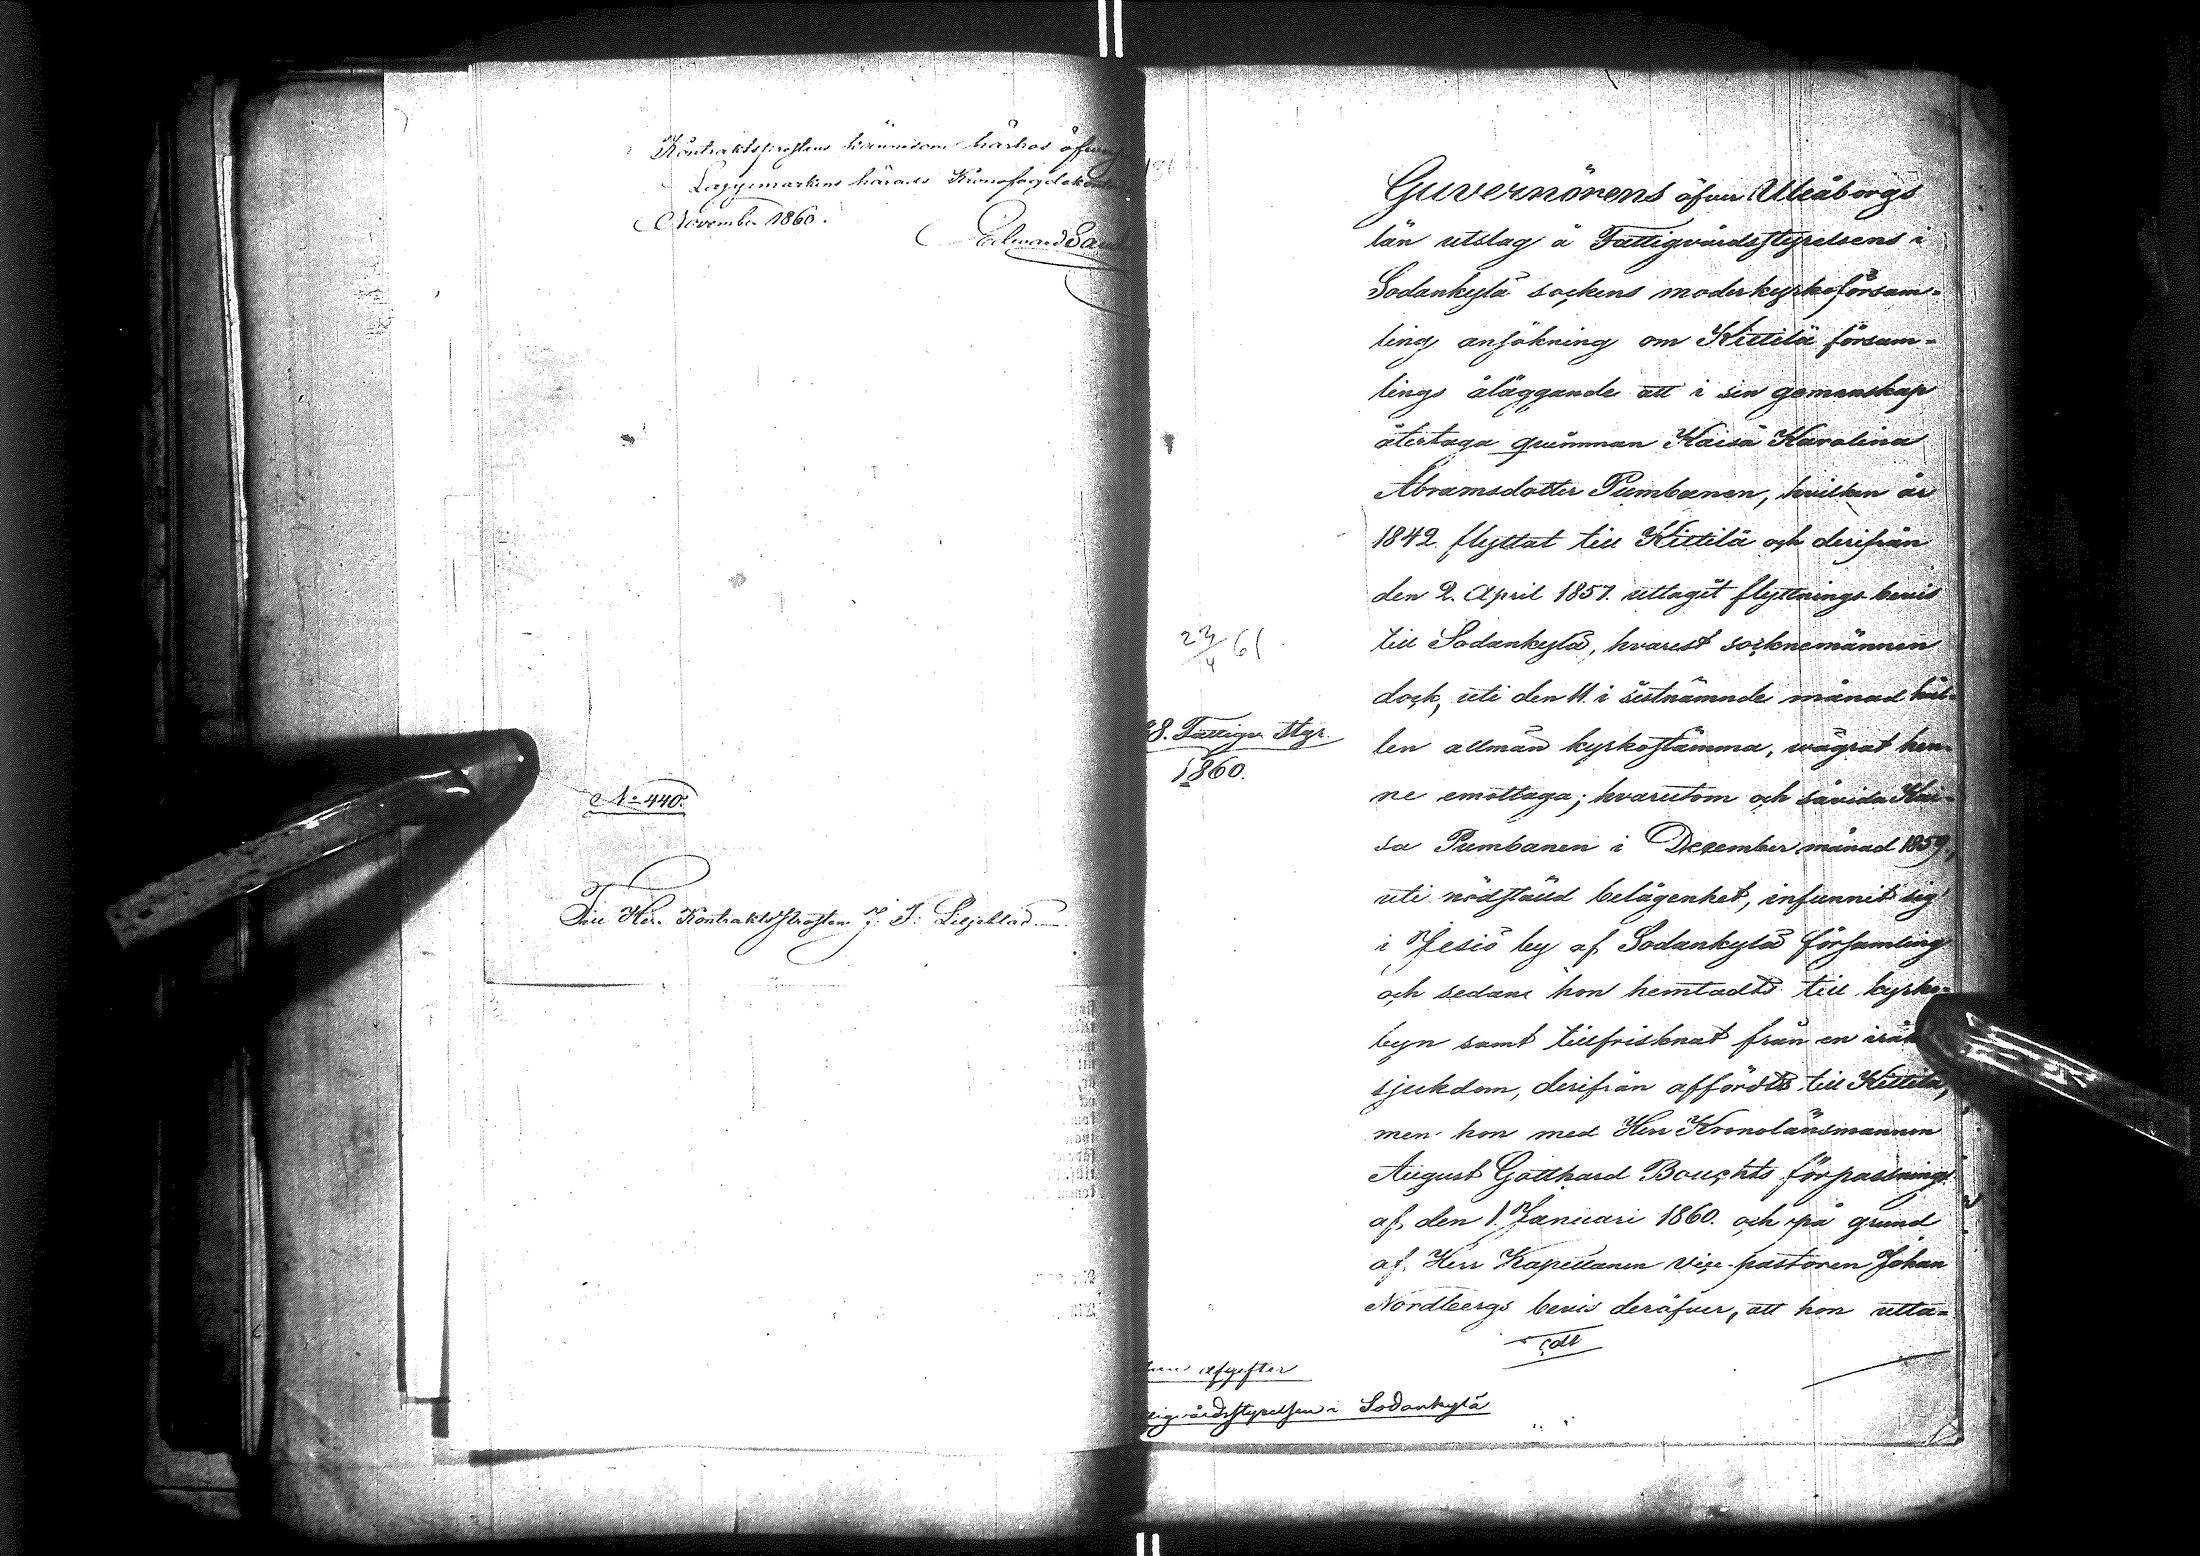 Kontraktsprosten kännedom härhos öfver
Lappmarkens härads Kronofogdekontor
November 1860.
Edward
No 440.
Till Herr Kontraktsprosten J: F: Liljeblad.
Guvernörens öfver Uleåborgs
län utslag å Fattigvårdsstyrelsens i
Sodankylä sockens moderkyrkoförsam-
ling ansökning om Kittilä försam-
lings åläggande att i sin gemenskap
återtaga qvinnan Kaisa Karolina
Abramsdotter Pumbanen, hvilken år
1842 flyttat till Kittilä och derifrån
den 2. April 1857. uttagit flyttnings bevis
till Sodankylä, hvarest socknemännen
dock, uti den 11. i sistnämnde månad hål-
len allmän kyrkostämma, vägrat hen-
ne emottaga; hvarutom och såvida Kai-
sa Pumbanen i December månad 1859,
uti nödstäld belägenhet, infunnit sig
i Jesiö by af Sodankylä församling
och sedan hon hemtadts till kyrko-
byn samt tillfrisknat från en iråkad
sjukdom, derifrån affördts till Kittilä,
men hon med Herr Kronolänsmannen
August Gotthard Bouchts förpassning
af den 1. Januari 1860. och på grund
af Herr Kapellanen Vice-pastoren Johan
Nordbergs bevis deröfver, att hon utta-
23/4 61
88. Fattigv. Styr.
1860.
afgifter
Sodankylä